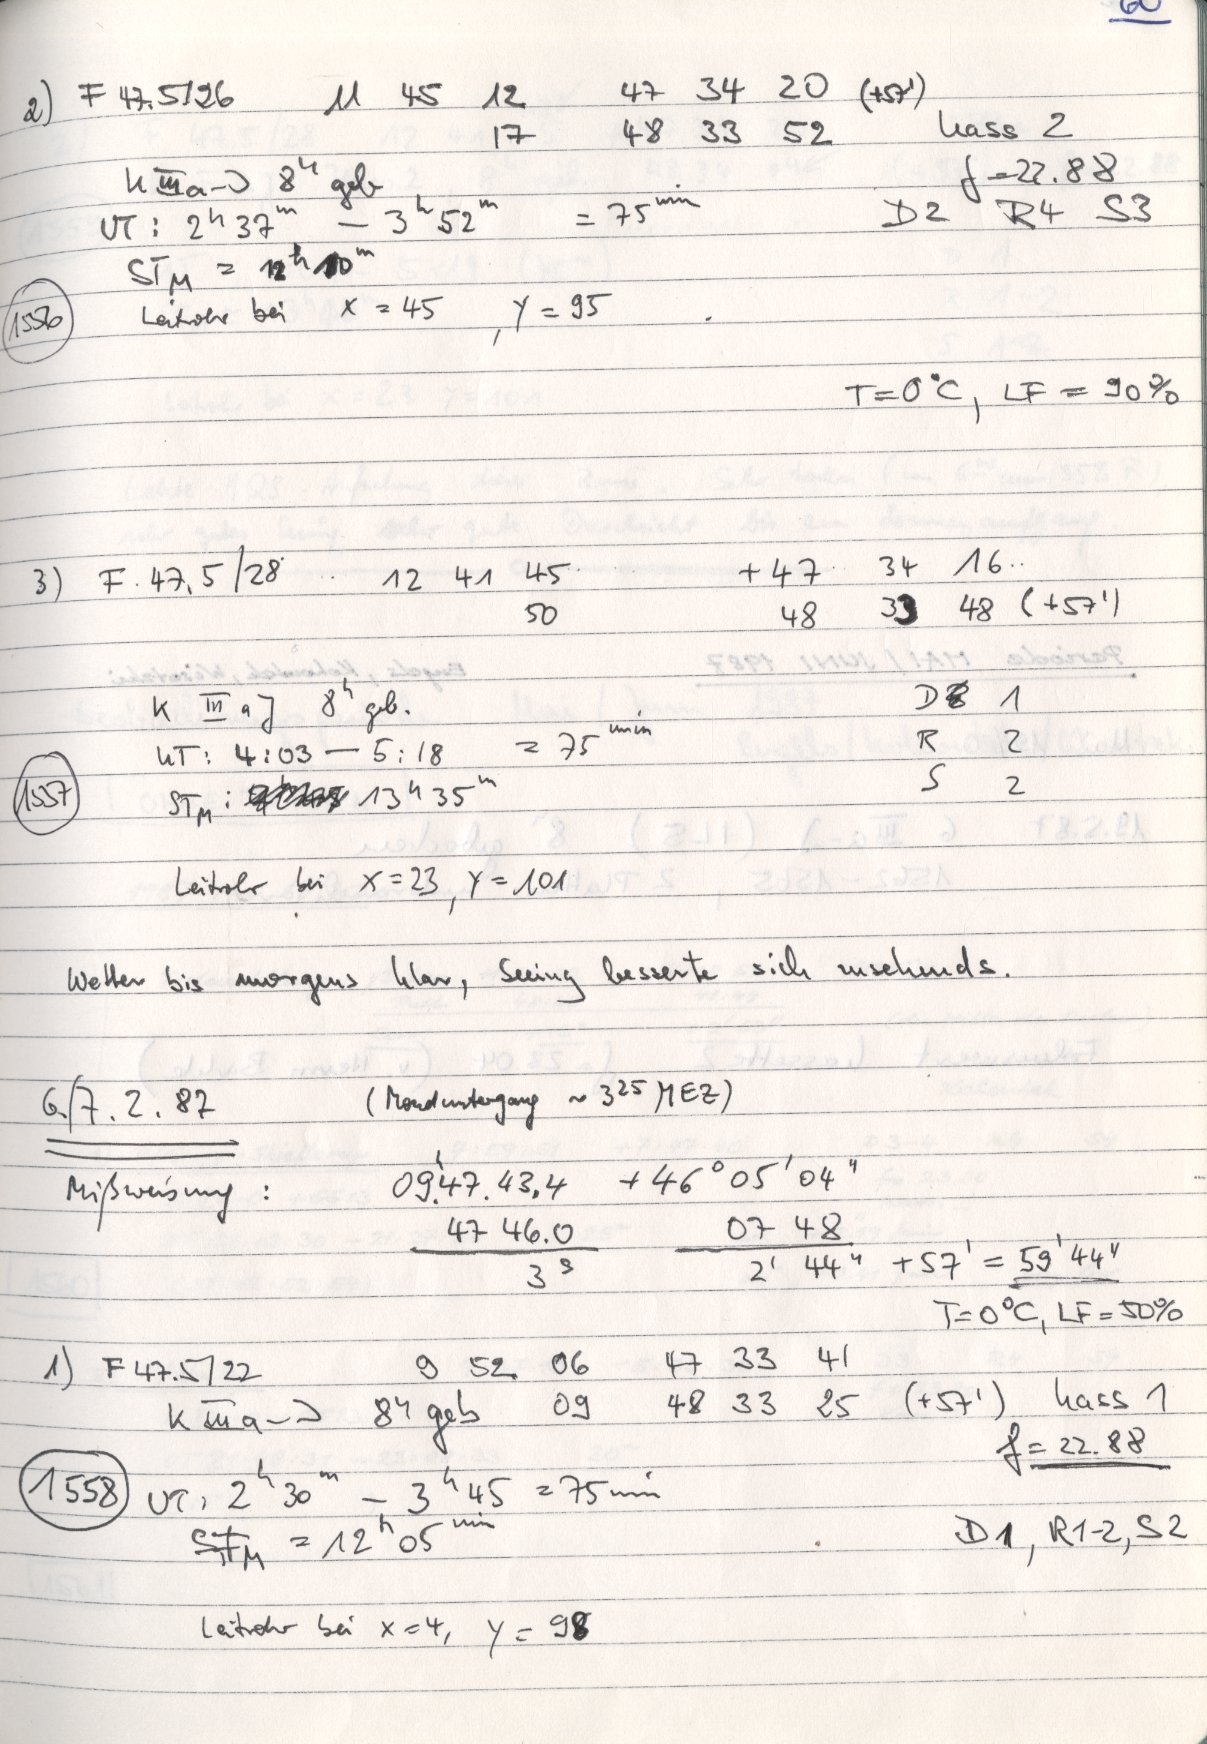 60
2) F 47.5/26 11 45 12 47 34 20 (+57')
17 48 33 52 Kass 2
K III a-J 8h geb f=22.88
UT: 2h 37m — 3h 52m = 75 min D2 R4 S3
STM = 12h 10m
1556 Leitrohr bei x = 45, y = 95
T=0°C, LF = 90%
3) F. 47.5/28 12 41 45 +47 34 16
50 48 33 48 (+57')
K III a J 8h geb. D 1
UT: 4:03 — 5:18 = 75 min R 2
1557 STM: 13h 35m S 2
Leitrohr bei x=23, y=101
Wetter bis morgens klar, Seeing besserte sich zusehends.
6./7. 2. 87 (Monduntergang ~ 3 25 MEZ)
Mißweisung: 09h 47. 43,4 +46° 05' 04"
47 46.0 07 48
3s 2' 44" +57' = 59' 44"
T=0°C, LF=50%
1) F 47.5/22 9 52. 06 47 33 41
K III a-J 8h geb 09 48 33 25 (+57') Kass 1
f = 22.88
1558 UT: 2h 30m — 3h 45 = 75 min
STM = 12h 05min D1, R1-2, S2
Leitrohr bei x=4, y = 98